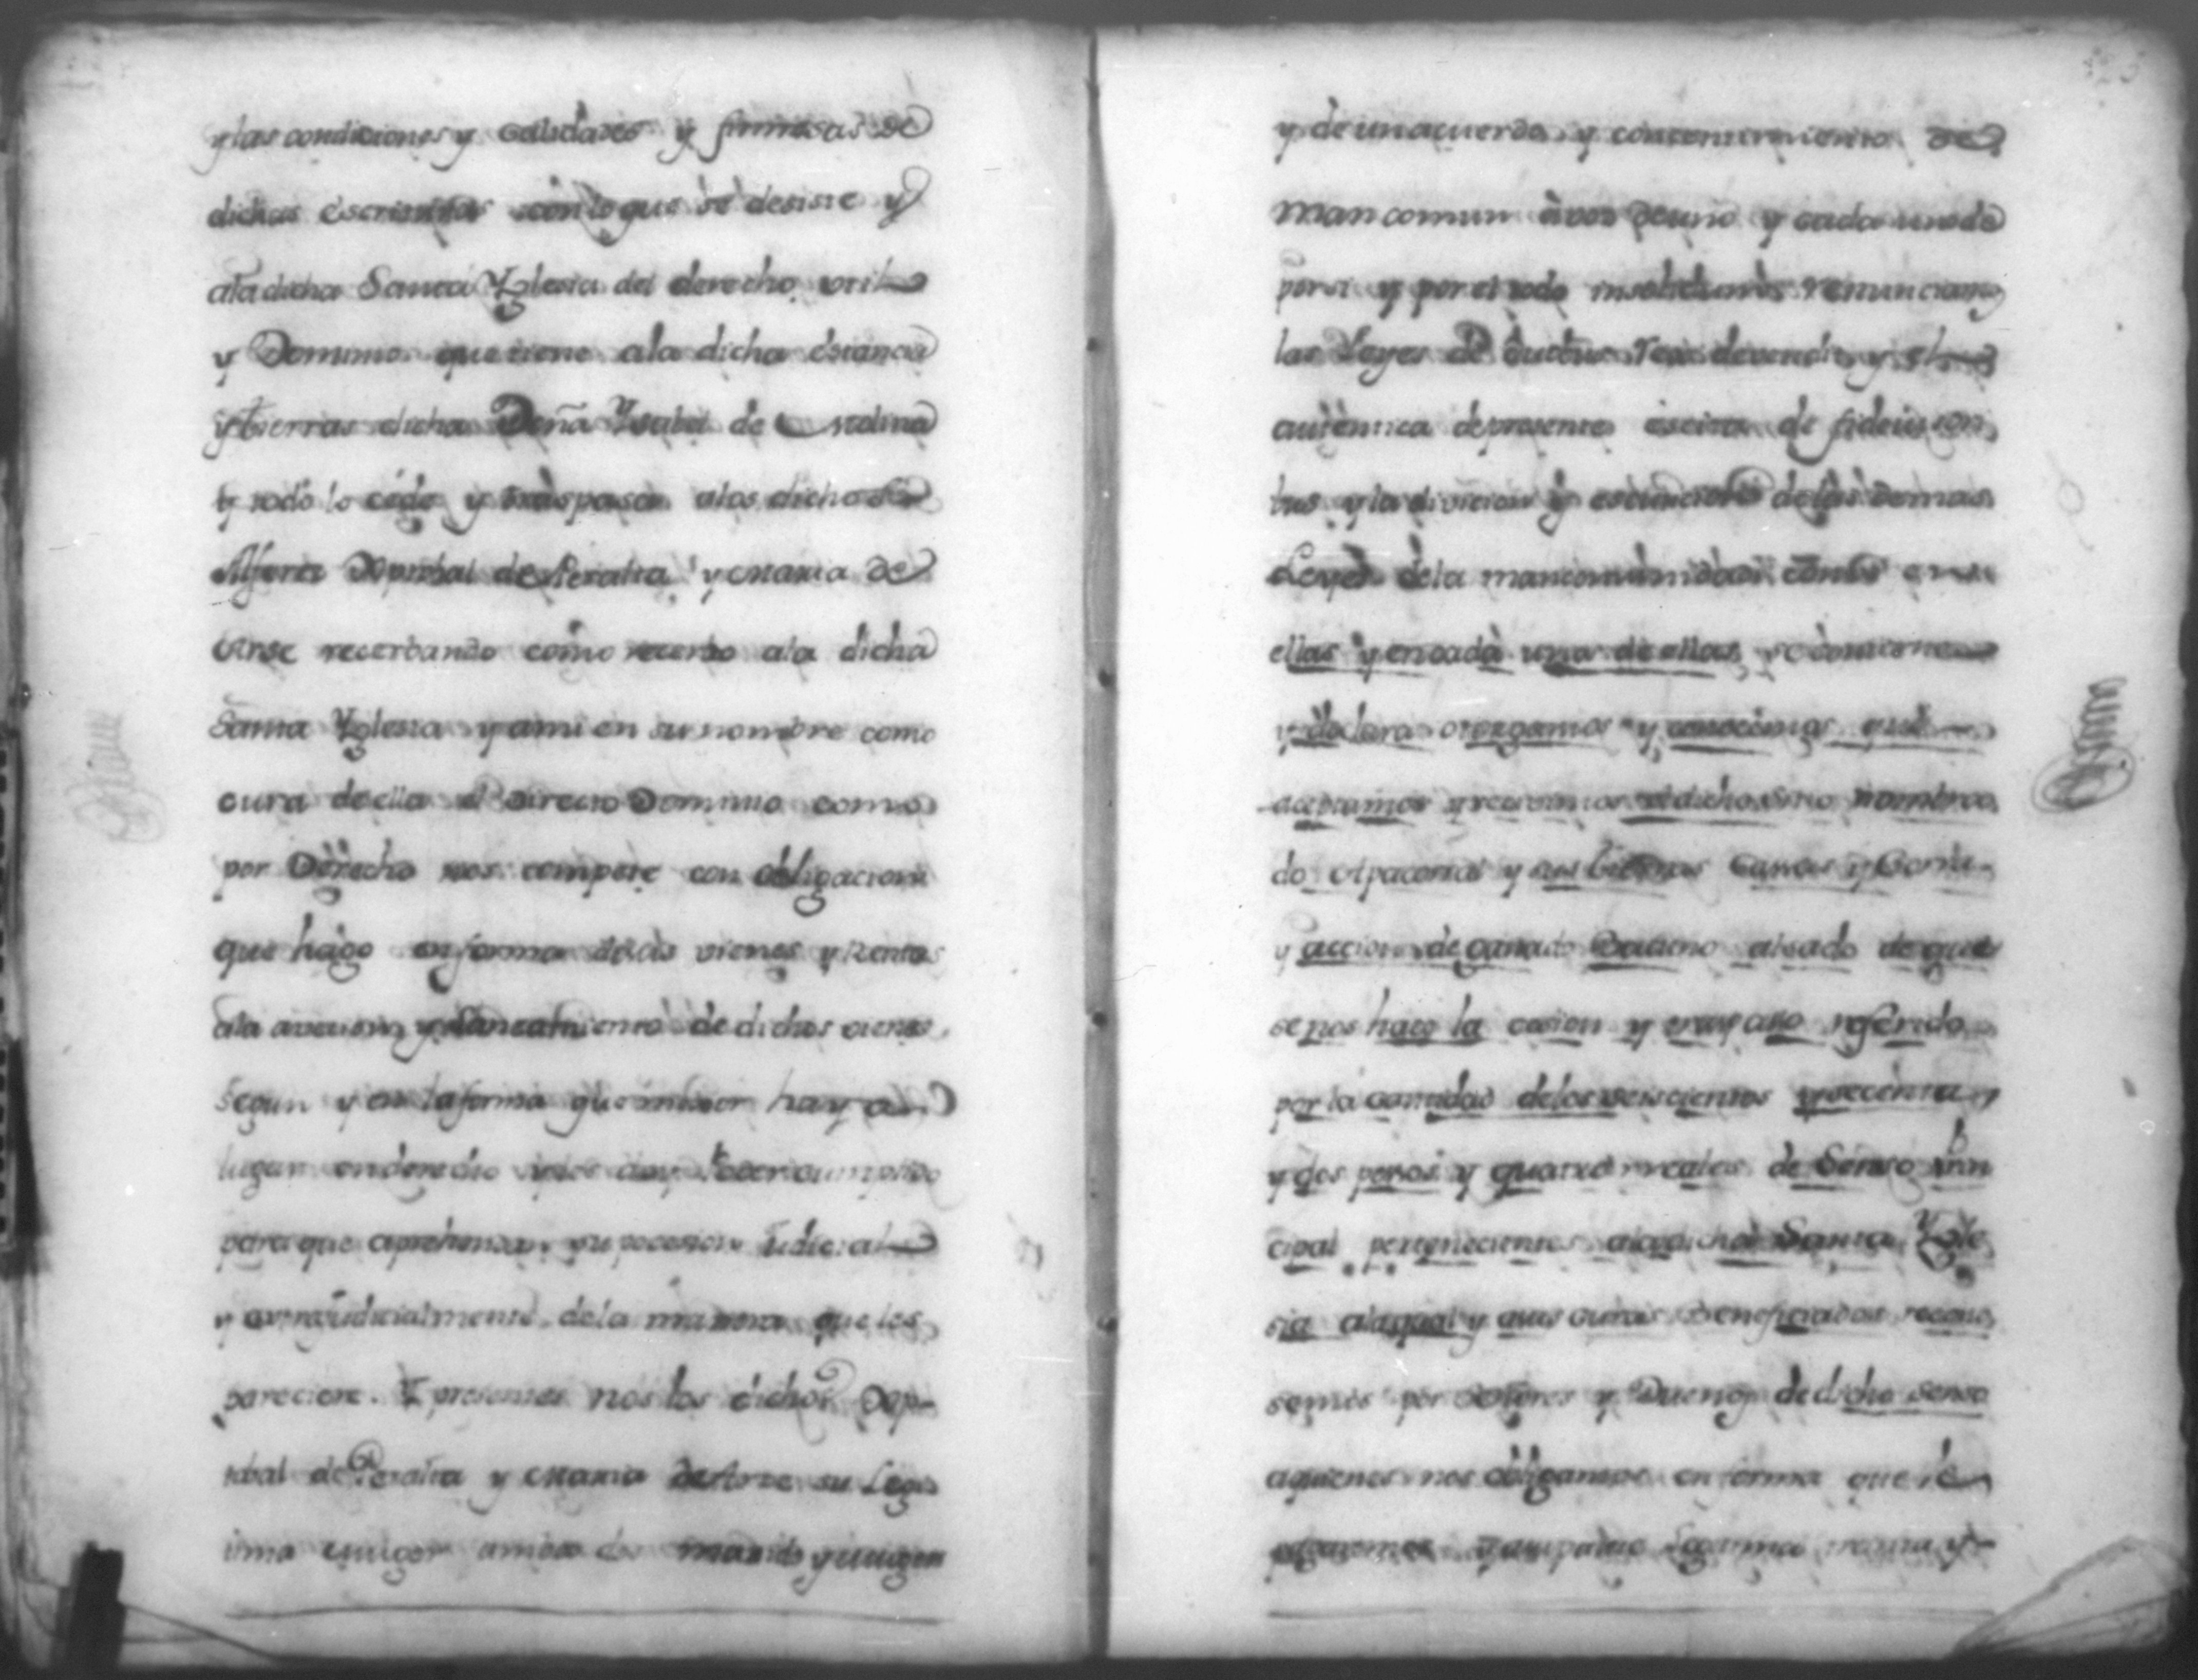 y las condiciones y calidades y firmesas de
dichas escrituras con lo que se desiste y
ala dicha Santa Yglesia del derecho vtil
y Dominio que tiene ala dicha estancia
y tierras dicha Doña Ysabel de Molina
y todo lo cede y traspasa alos dichos
Alferes Xptobal de Peralta y Maria de
Arse recerbando como recerbo ala dicha
Santa Yglesia y ami en su nombre como
cura de ella el directo Dominio como
por Derecho nos compete con obligacion
que hago en forma delos vienes y Rentas
ala eviccion y Saneamiento de dichos vienes
segun y en la forma que mejor haya
lugar en derecho y les doy Poder cumplido
para que aprehendan su pocesion Iudicial
y extrajudicialmente dela manera que les
pareciere. Y presentes nos los dichos Xpto
tobal de Peralta y Maria de Arse su Legi
tima muger ambos dos marido y muger
y de un acuerdo y consentimiento de
mancomun à voz de uno y cada uno de
por si y por el todo insolidum renunciamos
las Leyes de duobus rex devendi y el
auténtica depresente escrita de fideiusori
bus y la divicion y escurcion delas demas
Leyes dela mancomunidad como en
ellas y en cada una de ellas se contiene
y declara otorgamos y conocemos que
aceptamos y recivimos el dicho Sitio nombra
do y sus tierras Casas y
y accion de ganado Bacuno alsado de que
se nos hace la cesion y traspaso referido
por la cantidad delos seiscientos y secenta
y dos pesos y quatro reales de Senso prin
cipal pertenecientes ala dicha Santa Ygle
sia ala qual y a sus Curas Beneficiados recono
semos por Señores y Dueños de dicho Senso
a quienes nos obligamos en forma que le
pagaremos y